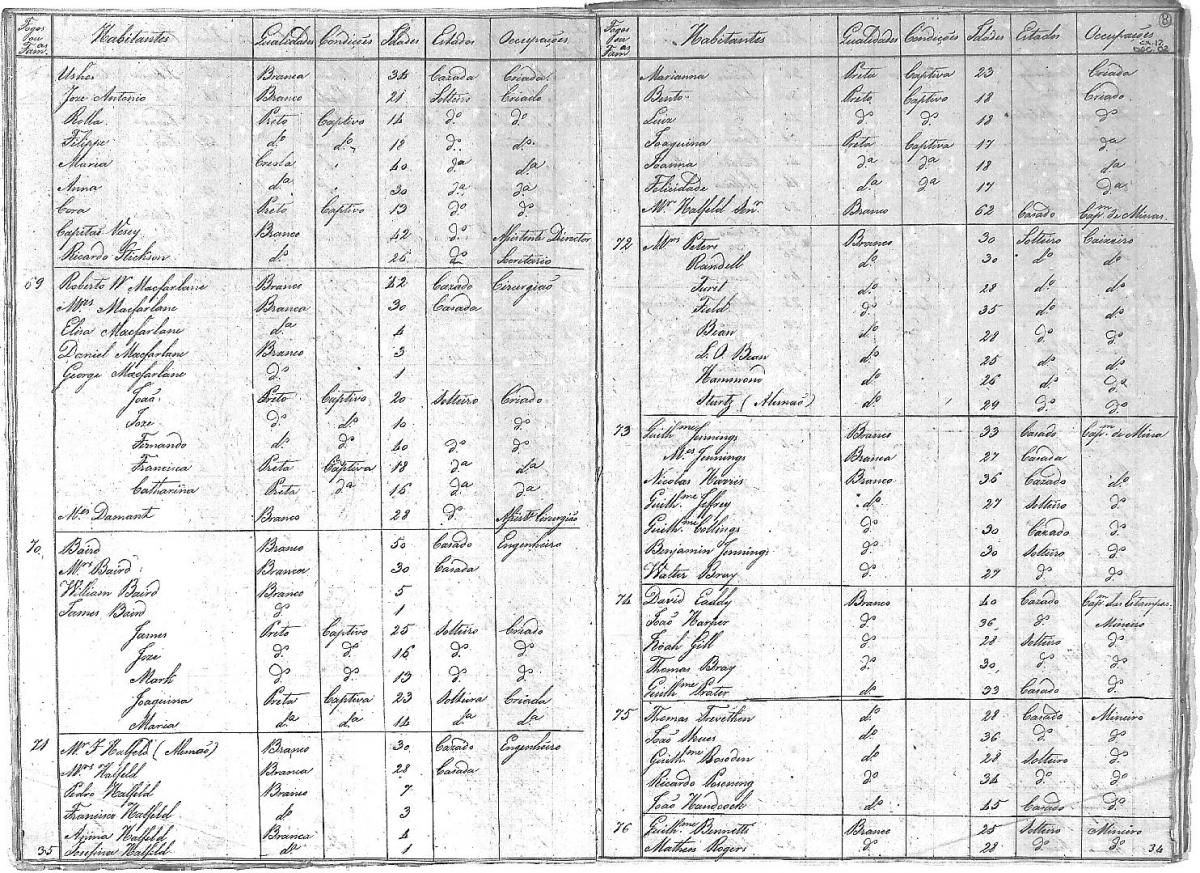 Fogos ou Fam.as Habitantes Qualidades Condições Idades Estados Occupações
Usher Branca 34 Cazada Criada
Joze Antonio Branco 21 Solteiro Criado
Rolla Preto Captivo 14 dº dº
Filippe dº dº 18 dº dº
Maria 40 dª dª
Anna dª 30 dª dª
Cora Preto Captivo 13 dº dº
Capitão Branco 42 dº Director
Ricardo dº 26 dº Secritario
69 Roberto W Macfarlane Branco 42 Cazado Cirurgião
Mrs Macfarlane Branca 30 Casada
Eliza Macfarlane dª 4
Daniel Macfarlane Branco 3
George Macfarlane dº 1
João Preto Captivo 20 Solteiro Criado
Joze dº dº 10 dº
Fernando dº dº 40 dº dº
Francisca Preta Captiva 18 dª dª
Catharina Preta dª 16 dª dª
Damant Branco 28 dº Cirurgião
70 Baird Branco 50 Casado Engenheiro
Mrs Baird Branca 30 Casada
William Baird Branco 5
James Baird dº 1
James Preto Captivo 25 Solteiro Criado
Joze dº dº 16 dº dº
Mark dº dº 13 dº dº
Joaquina Preta Captiva 23 Solteira Criada
Maria dª dª 14 dª dª
71 Mr F Halfeld (Alemão) Branco 30 Cazado Engenheiro
Mrs Halfeld Branca 28 Casada
Pedro Halfeld Branco 7
Francisco Halfeld dº 3
Anna Halfeld Branca 4
35 Josefina Halfeld dª 1
Fogos ou Fam.as Habitantes Qualidades Condições Idades Estados Occupações
8
CX.12
DOC.02
Marianna Preta Captiva 23 Criada
Bento Preto Captivo 18 Criado
Luiz dº dº 18 dº
Joaquina Preta Captiva 17 dª
Joanna dª dª 18 dª
Felicidade dª dª 17 dª
Mr Halfeld Senr Branco 62 Casado Capm de Minas
72 Peter Branco 30 Solteiro Caixeiro
Randell dº 30 dº dº
dº 28 dº dº
Field dº 35 dº dº
Bean dº 28 dº dº
Bean dº 25 dº dº
Hammond dº 26 dº dº
Sturtz (Alemão) dº 29 dº dº
73 Guithme Jennings Branco 33 Casado Capm de Mina
Mrs Jennings Branca 27 Casada
Nicolas Harris Branco 36 Cazado dº
Guithme Jeffrey dº 27 Solteiro dº
Guithme Collings dº 30 Cazado dº
Benjamin Jennings dº 30 Solteiro dº
Walter Bray dº 27 dº dº
74 David Eaddy Branco 40 Cazado Capm das Estampas
João Harper dº 36 dº Mineiro
Noah Gill dº 28 Solteiro dº
Thomas Bray dº 30 dº dº
Guithme Prater dº 33 Casado dº
75 Thomas Trevethen dº 28 Casado Mineiro
João Skues dº 36 dº dº
Guithme dº 28 Solteiro dº
Ricardo dº 34 dº dº
João Handcock dº 45 Casado dº
76 Guithme Bennetts Branco 25 Solteiro Mineiro
Mathew Rogers dº 28 dº dº
34